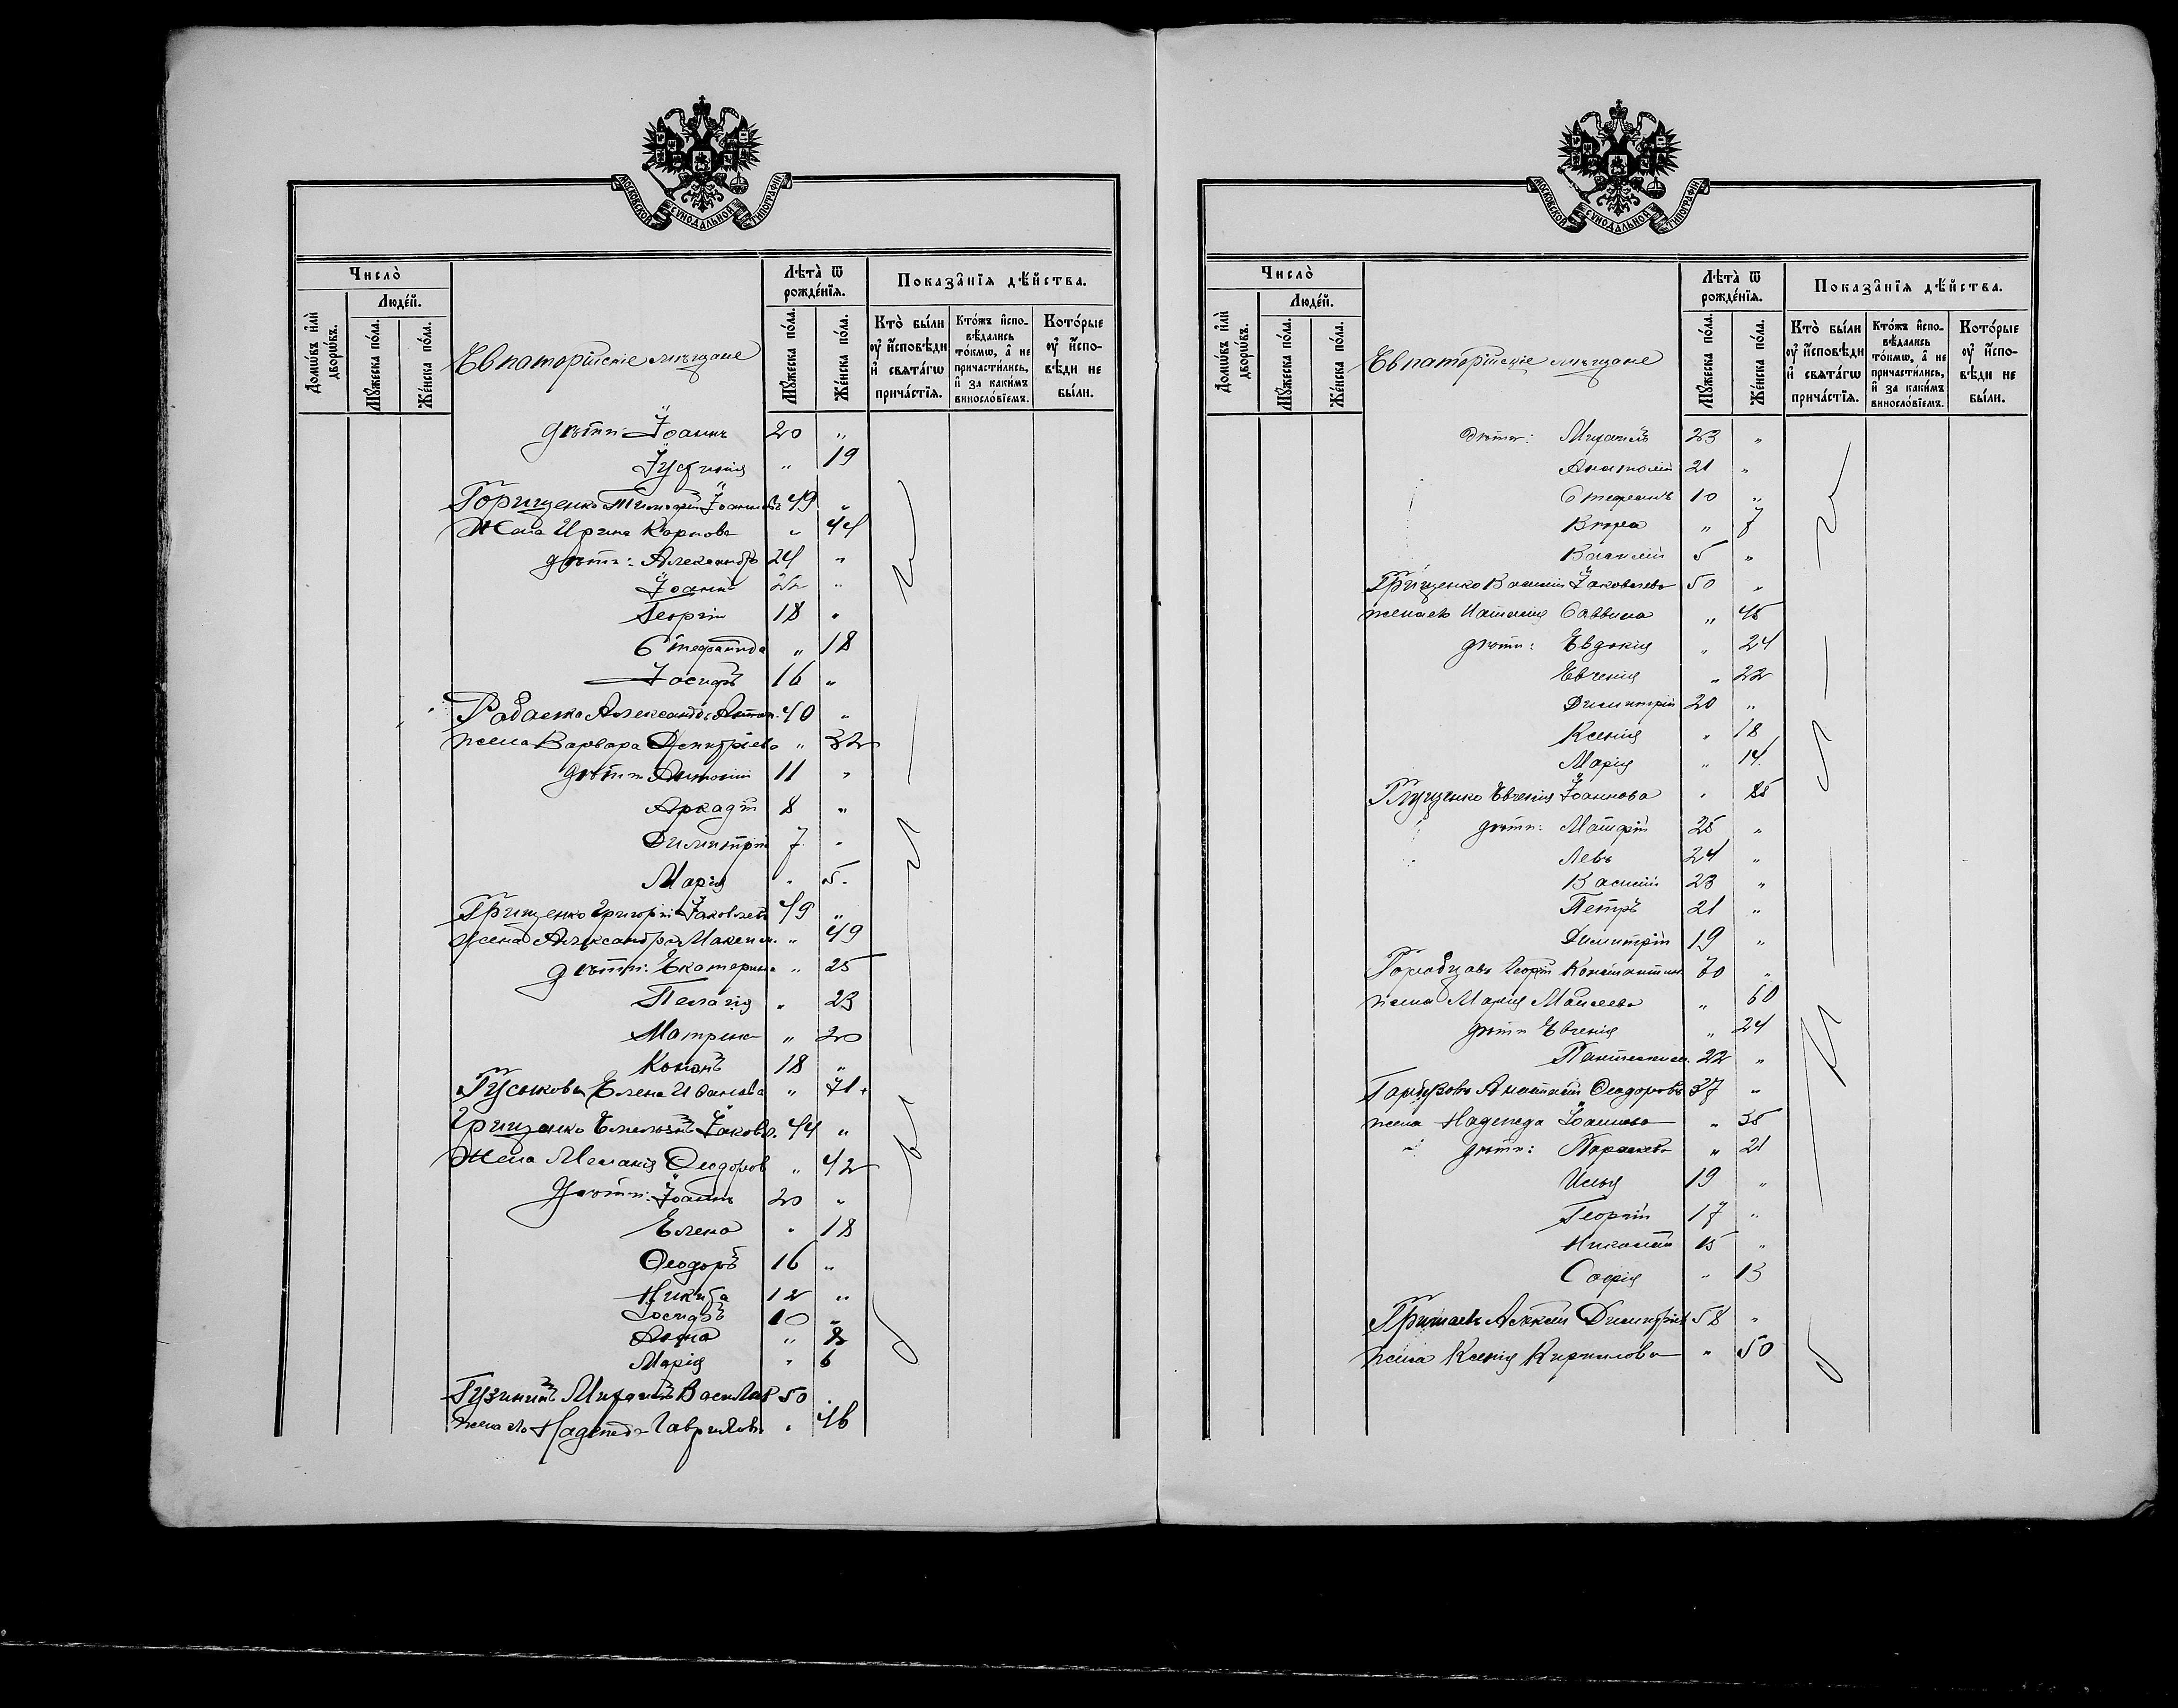 МОСКОВСКОЙ СѴНОДАЛЬНОЙ ТИПОГРАФІИ
Число̀
Людéй.
Домѡ́въ и҆лѝ дворѡ́въ.
Мꙋ́жеска по́ла.
Же́нска по́ла.
Лѣта̀ ѿ рожде́нїѧ.
Мꙋ́жеска по́ла.
Же́нска по́ла.
Показа̑нїѧ дѣ́йства.
Кто̀ бы́ли оу҆ и҆сповѣ́ди и҆ свѧта́гѡ прича́стїѧ.
Кто́жъ и҆спо- вѣ́дались то́кмѡ, а҆ не причасти́лись, и҆ за каки́мъ винослов́їемъ.
Кото́рые оу҆ и҆спо- вѣ́ди не бы́ли.
Евпаторійскіе мѣщане
дѣти: Іоаннъ 20 "
Іустинія " 19
Горищенко Тимофей Іоанновъ 49 "
Жена Ирина Карпова " 44
дѣти: Александръ 24 "
Іоаннъ 22 "
Георгій 18 "
Стефанида " 18
Іосифъ 16 "
Александръ Антон. 40 "
жена Варвара Димитріева " 32
дѣти Антоній 11 "
Аркадій 8 "
Димитрій 7 "
Марія " 5
Грищенко Григорій Іаковлевъ 49 "
жена Александра Максим. " 49
дѣти: Екатерина " 25
Пелагія " 23
Матрена " 20
Кононъ 18 "
Гуськова Елена Иванова " 71
Грищенко Емельянъ Іаковл. 44 "
Жена Меланія Ѳеодоров " 42
Дѣти: Іоаннъ 20 "
Елена " 18
Ѳеодоръ 16 "
Никита 12 "
Іосифъ 10 "
Анна " 8
Марія " 6
Гузининъ Михаилъ Васильев 50 "
жена его Надежда Гаврилова " 46
МОСКОВСКОЙ СѴНОДАЛЬНОЙ ТИПОГРАФІИ
Число̀
Людéй.
Домѡ́въ и҆лѝ дворѡ́въ.
Мꙋ́жеска по́ла.
Же́нска по́ла.
Лѣта̀ ѿ рожде́нїѧ.
Мꙋ́жеска по́ла.
Же́нска по́ла.
Показа̑нїѧ дѣ́йства.
Кто̀ бы́ли оу҆ и҆сповѣ́ди и҆ свѧта́гѡ прича́стїѧ.
Кто́жъ и҆спо- вѣ́дались то́кмѡ, а҆ не причасти́лись, и҆ за каки́мъ винослов́їемъ.
Кото́рые оу҆ и҆спо- вѣ́ди не бы́ли.
Евпаторійскіе мѣщане
дѣти: Михаилъ 23 "
Анатолій 21 "
Стефанъ 10 "
Вѣра " 7
Василій 5 "
Грищенко Василій Іаковлевъ 50 "
жена его Наталія Саввина " 45
дѣти: Евдокія " 24
Евгенія " 22
Димитрій 20 "
Ксенія " 18
Марія " 14
Глущенко Евгенія Іоаннова "
дѣти: Матфій 25 "
Левъ 24 "
Василій 23 "
Петръ 21 "
Димитрій 19 "
Георгій Константин. 70 "
жена Марія Моисеева " 60
дѣти Евгенія " 24
Пантелеим. 22 "
Гарбузовъ Анатолій Ѳеодоровъ 37 "
жена Надежда Іоаннова " 35
дѣти: Параскева " 21
Илья 19 "
Георгій 17 "
Николай 15 "
Софія " 13
Алексѣй Димитріев 58 "
жена Ксенія Кириллова " 50